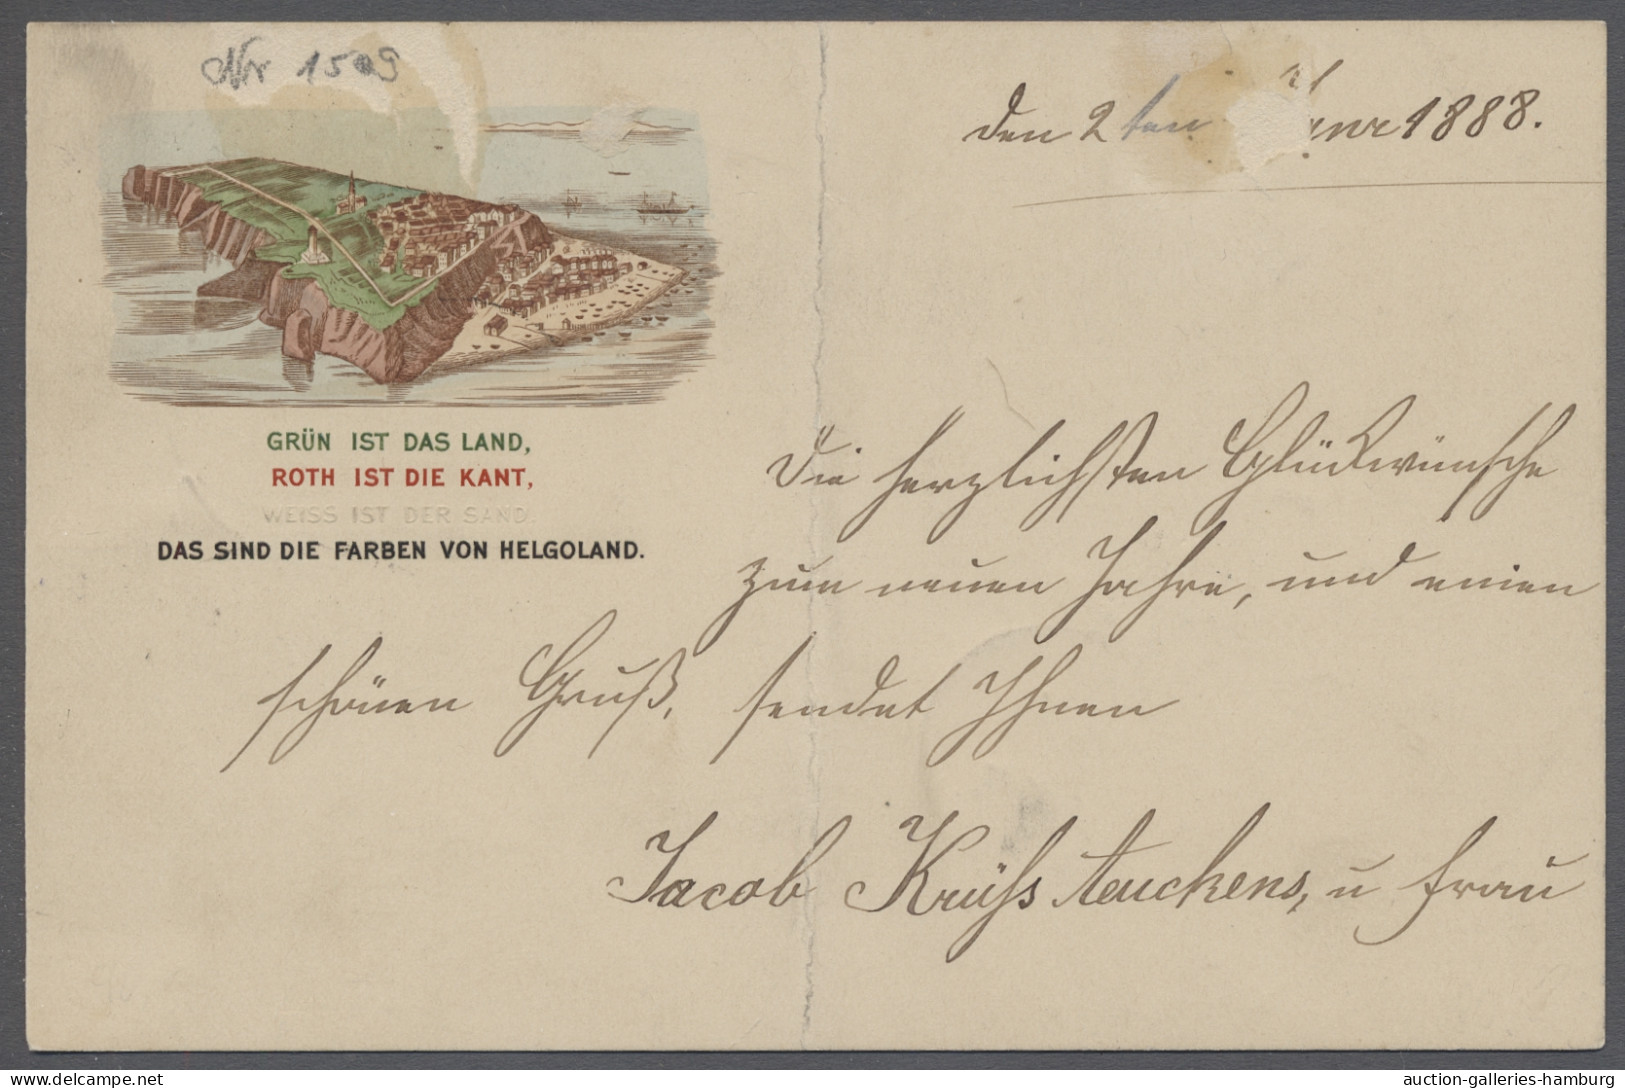 Nr 1509
den 2ten 1888.
GRÜN IST DAS LAND,
ROTH IST DIE KANT,
WEISS IST DER SAND.
DAS SIND DIE FARBEN VON HELGOLAND.
Die herzlichsten Glückwünsche
zum neuen Jahre, und einen
schönen Gruß, sendet Ihnen
Jacob Krüss Aeuckens, u Frau
auction-galleries-hamburg